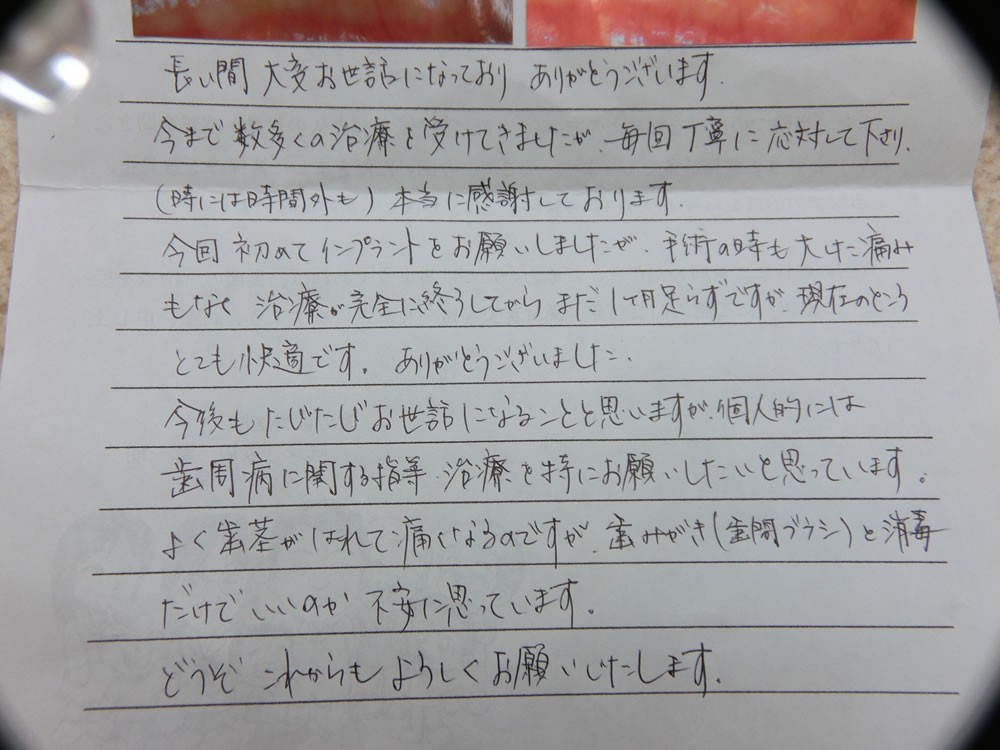 長い間 大変お世話になっており ありがとうございます.
今まで 数多くの治療を受けてきましたが、毎回丁寧に応対して下さり、
(時には時間外も) 本当に感謝しております.
今回 初めてインプラントをお願いしましたが、手術の時も大した痛み
もなく 治療が完全に終了してから まだ1ヶ月足らずですが、現在のところ
とても快適です。 ありがとうございました.
今後も たびたびお世話になることと思いますが、個人的には
歯周病に関する指導・治療を特にお願いしたいと思っています。
よく歯茎がはれて痛くなるのですが、歯みがき(歯間ブラシ)と消毒
だけでいいのか 不安に思っています.
どうぞ これからも よろしくお願いいたします.